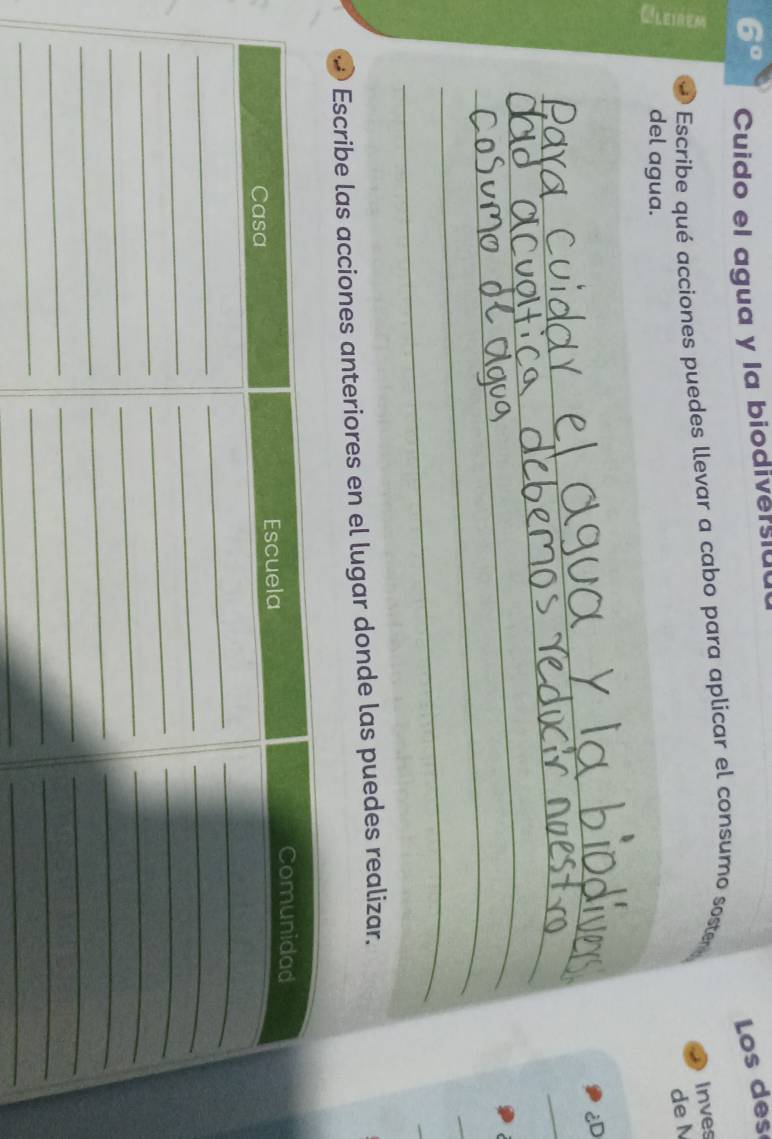 6°
Cuido el agua y la biodiversidad
LEIREM
Escribe qué acciones puedes llevar a cabo para aplicar el consumo
del agua.
Para cuidar el agua y la biodivers
dad acualtica debemos reducir nuestro
cosumo de agua
Escribe las acciones anteriores en el lugar donde las puedes realizar.
Casa
Escuela
Comunidad
Los des
Inves
de
¿D